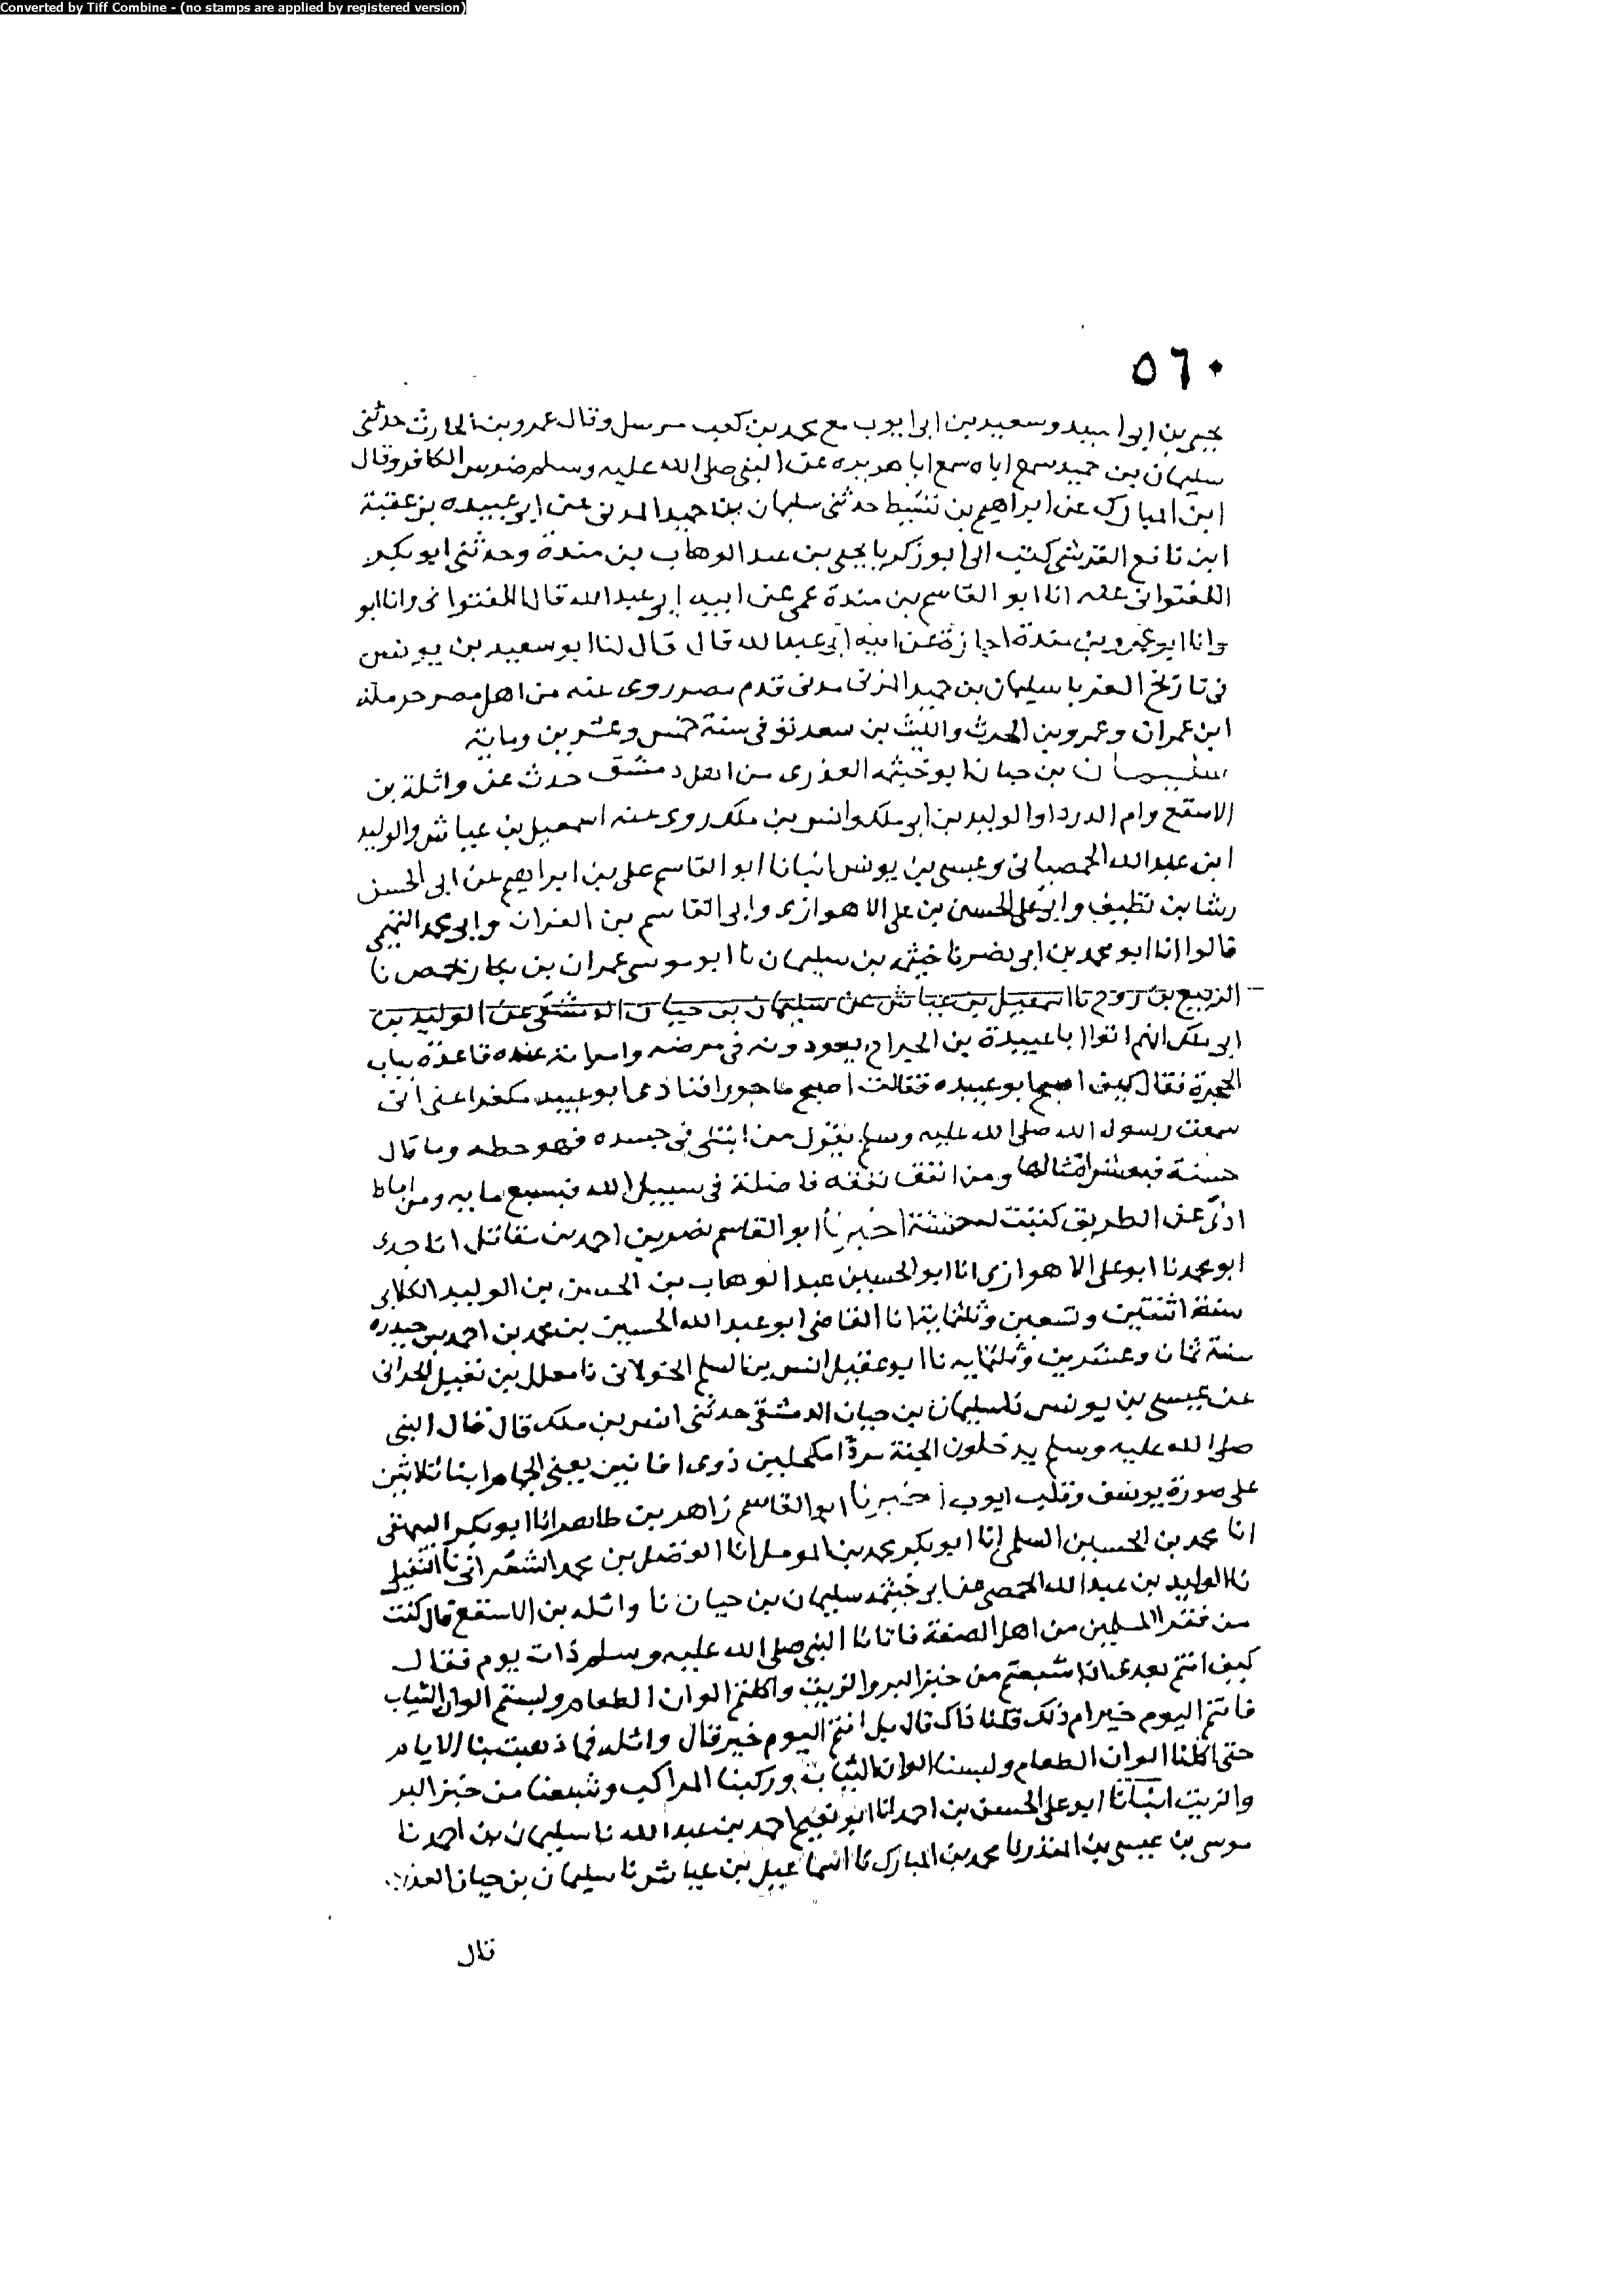 Converted by Tiff Combine - (no stamps are applied by registered version)
٥٦٠
بن ابى اسيد وسعيد بن ابى ايوب مع محمد بن كعب مرسل وقال عمرو بن الحارث حدثنى
سليمان بن حميد سمع اباه سمع ابا هريره عن النبى صلى الله عليه وسلم ضرس الكافر وقال
ابن المبارك عن ابراهيم بن نشيط حدثنى سليمان بن حميد المدنى عن ابى عبيده بن عقبة
ابن نافع القرشى كتب الى ابو زكريا يحيى بن عبد الوهاب بن مندة وحدثنى ابو بكر
اللفتوانى عنه انا ابو القاسم بن مندة عمى عن ابيه ابى عبد الله قال اللفتوانى وانا ابو
وانا ابو عمرو بن مندة اجازة عن ابيه ابى عبد الله قال قال لنا ابو سعيد بن يونس
فى تاريخ الغربا سليمان بن حميد المزنى مدنى قدم مصر روى عنه من اهل مصر حرملة
ابن عمران وعمرو بن الحرث والليث بن سعد توفى سنة خمس وعشرين وماية
سليمان بن حيان ابو خيثمه العذرى من اهل دمشق حدث عن واثلة بن
الاسقع وام الدردا والوليد بن ابى ملك وانس بن ملك روى عنه اسمعيل بن عياش والوليد
ابن عبد الله الحمصيانى وعيسى بن يونس انبانا ابو القاسم على بن ابراهيم عن ابى الحسن
رشا بن نظيف وابى على الحسن بن على الاهوازى وابى القاسم بن الفرات وابى محمد التميمى
قالوا انا ابو محمد بن ابى نصر نا خيثمه بن سليمان نا ابو موسى عمران بن بكار بحمص نا
الربيع بن روح نا اسمعيل بن عياش عن سليمان بن حيان الدمشقى عن الوليد بن
ابى ملك انهم اتوا ابا عبيدة بن الجراح يعودونه فى مرضه وامراته عنده قاعدة بباب
الحجرة فقال كيف اصبح ابو عبيده فقالت اصبح ماجورا فنادى ابو عبيده مكفرا عنى انى
سمعت رسول الله صلى الله عليه وسلم يقول من ابتلى فى جسده فهو حطه وما قال
حسنة فبعشر امثالها ومن انفق نفقه فاضلة فى سبيل الله فبسبع مايه ومن اماط
اذى عن الطريق كتبت له حسنة اخبرنا ابو القاسم نصر بن احمد بن مقاتل انا جدى
ابو محمد نا ابو على الاهوازى انا ابو الحسين عبد الوهاب بن الحسن بن الوليد الكلابى
سنة اثنتين وتسعين وثلثماية انا القاضى ابو عبد الله الحسين بن محمد بن احمد بن حيدره
سنة ثمان وعشرين وثلثمايه نا ابو عقيل انس بن السلم الخولانى نا معلل بن نفيل الحرانى
عن عيسى بن يونس نا سليمان بن حيان الدمشقى حدثنى انس بن ملك قال قال النبى
صلى الله عليه وسلم يدخلون الجنة مردا مكحلين ذوى افانين يعنى الجمام ابنا ثلاثين
على صورة يوسف وقلب ايوب اخبرنا ابو القاسم زاهر بن طاهر انا ابو بكر البيهقى
انا محمد بن الحسين السلمى انا ابو بكر محمد بن المومل انا الفضل بن محمد الشعرانى نا النفيلى
نا الوليد بن عبد الله الحمصى عن ابى خيثمه سليمان بن حيان نا واثله بن الاسقع قال كنت
من فقرا المسلمين من اهل الصفة فاتانا النبى صلى الله عليه وسلم ذات يوم فقال
كيف انتم بعدى اذا شبعتم من خبز البر والزيت واكلتم الوان الطعام ولبستم الوان الثياب
فانتم اليوم خير ام ذلك قلنا ذاك قال بل انتم اليوم خير قال واثله فما ذهبت بنا الايام
حتى اكلنا الوان الطعام ولبسنا الوان الثياب وركبنا المراكب وشبعنا من خبز البر
والزيت انبانا ابو على الحسن بن احمد انا ابو نعيم احمد بن عبد الله نا سليمان بن احمد نا
موسى بن عيسى بن المنذر نا محمد بن المبارك نا اسماعيل بن عياش نا سليمان بن حيان العذرى
قال